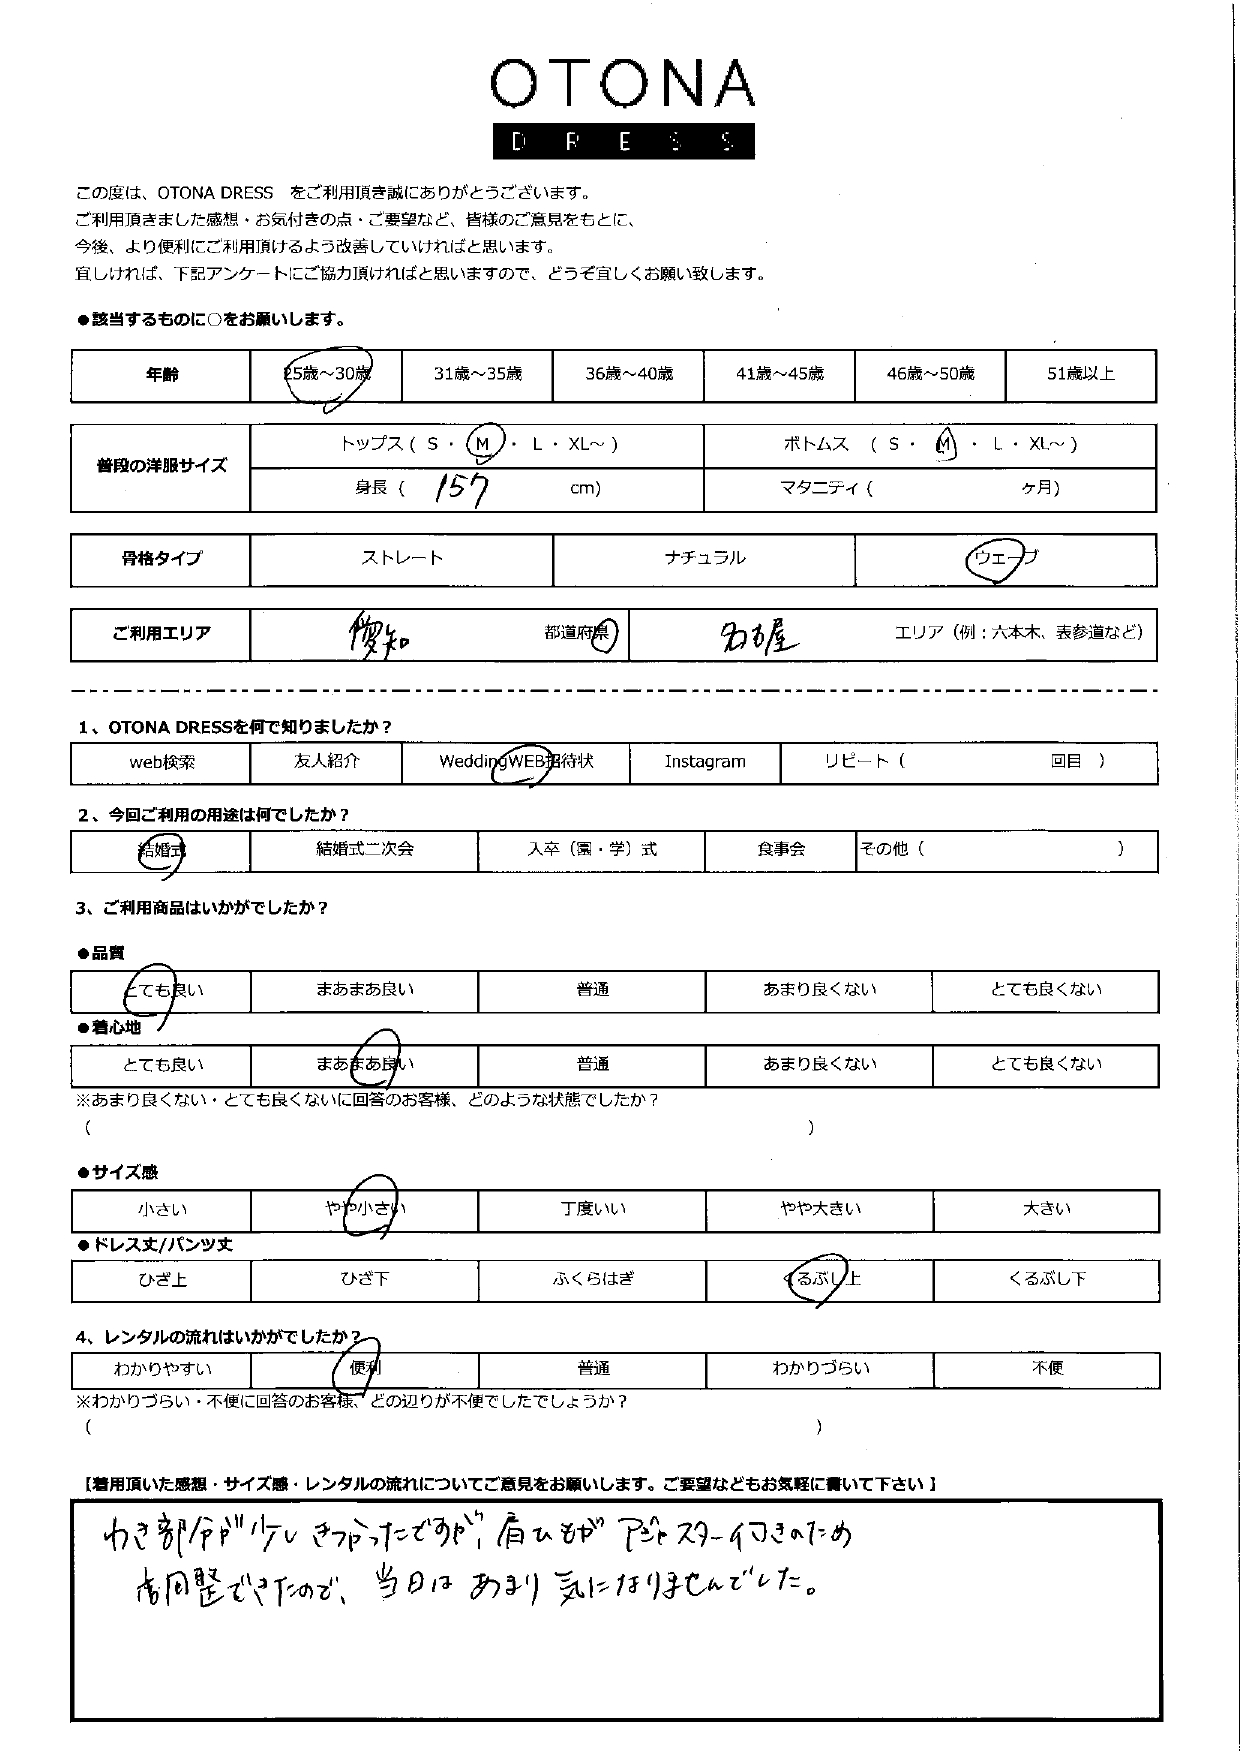 OTONA
DRESS
この度は、OTONA DRESS　をご利用頂き誠にありがとうございます。
ご利用頂きました感想・お気付きの点・ご要望など、皆様のご意見をもとに、
今後、より便利にご利用頂けるよう改善していければと思います。
宜しければ、下記アンケートにご協力頂ければと思いますので、どうぞ宜しくお願い致します。
●該当するものに○をお願いします。
年齢 25歳～30歳 31歳～35歳 36歳～40歳 41歳～45歳 46歳～50歳 51歳以上
普段の洋服サイズ
トップス ( S ・ M ・ L ・ XL～ ) ボトムス ( S ・ M ・ L ・ XL～ )
身長 ( 157 cm) マタニティ ( ヶ月)
骨格タイプ ストレート ナチュラル ウェーブ
ご利用エリア 愛知 都道府県 名古屋 エリア（例：六本木、表参道など）
1、OTONA DRESSを何で知りましたか？
web検索 友人紹介 WeddingWEB招待状 Instagram リピート ( 回目 )
2、今回ご利用の用途は何でしたか？
結婚式 結婚式二次会 入卒（園・学）式 食事会 その他 ( )
3、ご利用商品はいかがでしたか？
●品質
とても良い まあまあ良い 普通 あまり良くない とても良くない
●着心地
とても良い まあまあ良い 普通 あまり良くない とても良くない
※あまり良くない・とても良くないに回答のお客様、どのような状態でしたか？
( )
●サイズ感
小さい やや小さい 丁度いい やや大きい 大きい
●ドレス丈/パンツ丈
ひざ上 ひざ下 ふくらはぎ くるぶし上 くるぶし下
4、レンタルの流れはいかがでしたか？
わかりやすい 便利 普通 わかりづらい 不便
※わかりづらい・不便に回答のお客様、どの辺りが不便でしたでしょうか？
( )
【着用頂いた感想・サイズ感・レンタルの流れについてご意見をお願いします。ご要望などもお気軽に書いて下さい】
わき部分が少しきつかったですが、肩ひもがアジャスター付きのため
調整できたので、当日はあまり気になりませんでした。